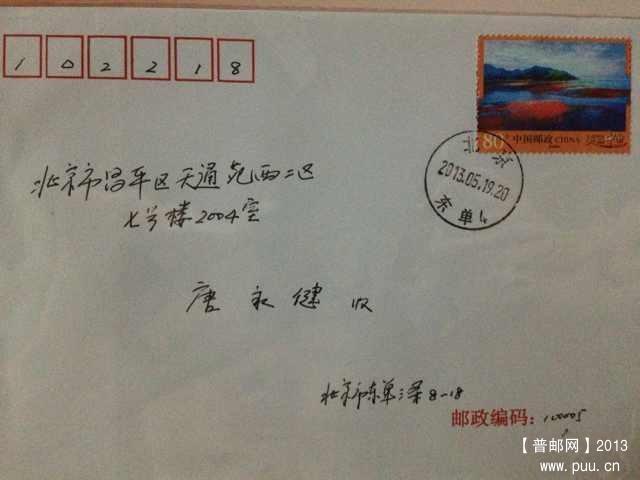 1 0 2 2 1 8
80分 中国邮政 CHINA
北京
2013.05.19.20
东单4
北京市昌平区天通苑西二区
七号楼2004室
唐永健 收
北京市东单三条8-18
邮政编码: 100005
【普邮网】2013
www.puu.cn